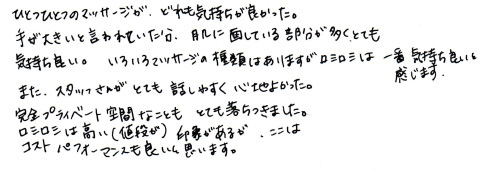 ひとつひとつのマッサージが、どれも気持ちが良かった。
手が大きいと言われていた分、肌に面している部分が多くとても
気持ち良い。いろいろマッサージの種類はありますがロミロミは一番気持ち良いと
感じます。
また、スタッフさんがとても話しやすく心地よかった。
完全プライベート空間なことも とても落ちつきました。
ロミロミは高い(値段が)印象があるが、ここは
コストパフォーマンスも良いと思います。